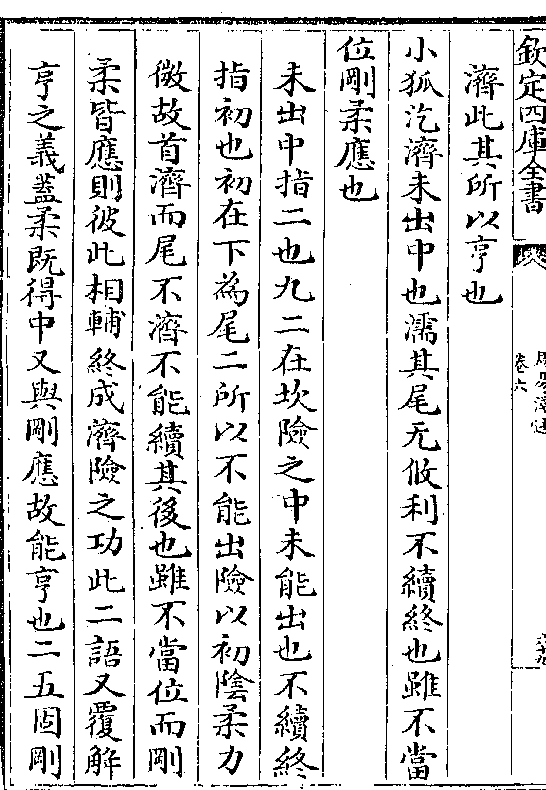 欽定四庫全書
卷六
濟此其所以亨也
小狐汔濟未出中也濡其尾无攸利不續終也雖不當
位剛柔應也
未出中指二也九二在坎險之中未能出也不續終
指初也初在下為尾二所以不能出險以初陰柔力
微故首濟而尾不濟不能續其後也雖不當位而剛
柔皆應則彼此相輔終成濟險之功此二語又覆解
亨之義蓋柔既得中又與剛應故能亨也二五固剛